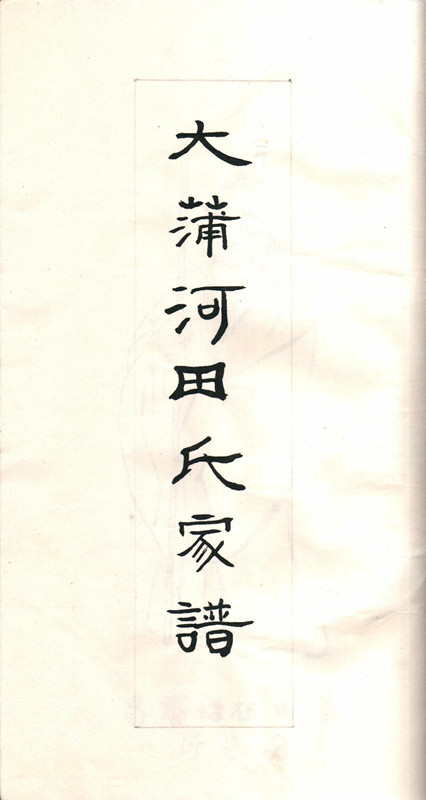 大蒲河田氏家譜